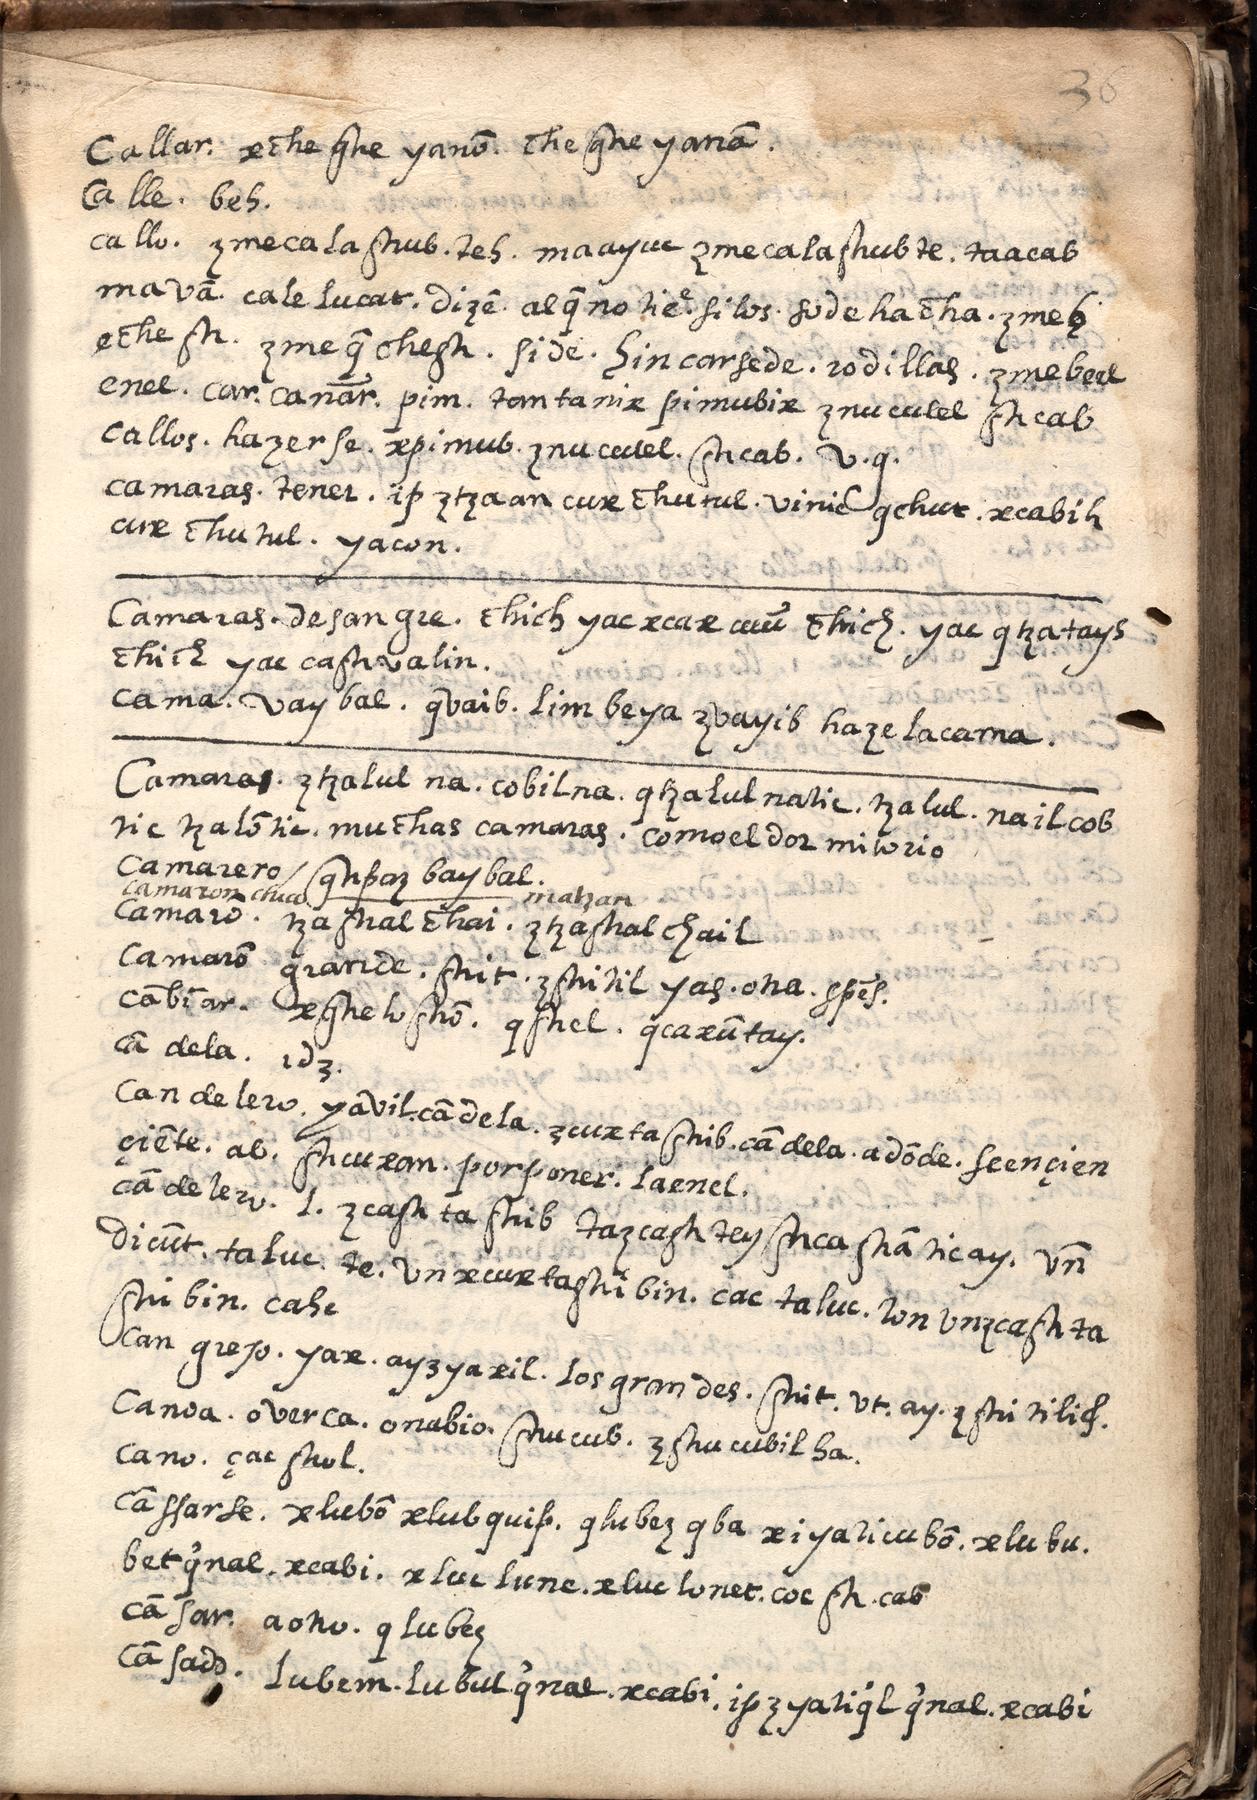 36
Callar. xche ghe yanō. che ghe yanā.
Calle. beh.
callo. zmecalashub. teh. maayuc zmecalashubte. taacab
mavā. cale lucat. dizē. alq̃ no tiee. si los. so de hacha. zmeh
eche sh. zmeq̃ chegh. si de. hin carsede. rodillas. zmebeel
enel. car. canār. pim. tantanix pimubix znuculel shcab
callos. hazerse. xpimub. znuculel. shcab. v. q.
camaras. tener. ip ztzaan cux chutul. vinic qchut. xcabih
cux chutul. yacon.
Camaras. de sangre. chich yac xcax chich. yac qtzatays
chich yac cashvalin.
cama. vaybal. qvaib. limbeya zvayib haze la cama.
Camaras. ztzalul na. cobilna. qtzalulnatic. tzalul. nailcob
tic tzalōtic. muchas camaras. como el dormitorio
Camarero / baybal.
camaron chico matzan
Camarō. tzashal chai. ztzashal chail
Camarō grande. shit. zshitil yas. otra. spēs.
cābiar. xghelo shō. qshel. qcaxūtay.
cā dela. idz.
Candelero. yāvil. cādela. zcuxtashib. cādela. adōde. se ençien
çiēte. ab. shcuxan. por poner. la enel.
cā delero. l. zcash ta shib tazcash tey shca shātic ay. vn̄
dicūt. taluc. te. vn xcuxtashi bin. cac taluc. lon vnzcashta
shi bin. cahe
Can grejo. yax. ayzyaxil. los grandes. shit. vt. ay. zshitilich.
Canoa. o verca. o nabio. shucub. zshucubil ha.
Cano. çac shol.
cā ssarse. xlubō xlub quip. qlubez qba xiyaticubō. xlubu.
bet q̃nal. xcabi. xluc lune. xluc lonet. coc sh. cab
cā sar. aoho. qlubez
cā sado. lubem. lubul q̃nal. xcabi. ip zyatiq̃l q̃nal. xcabi